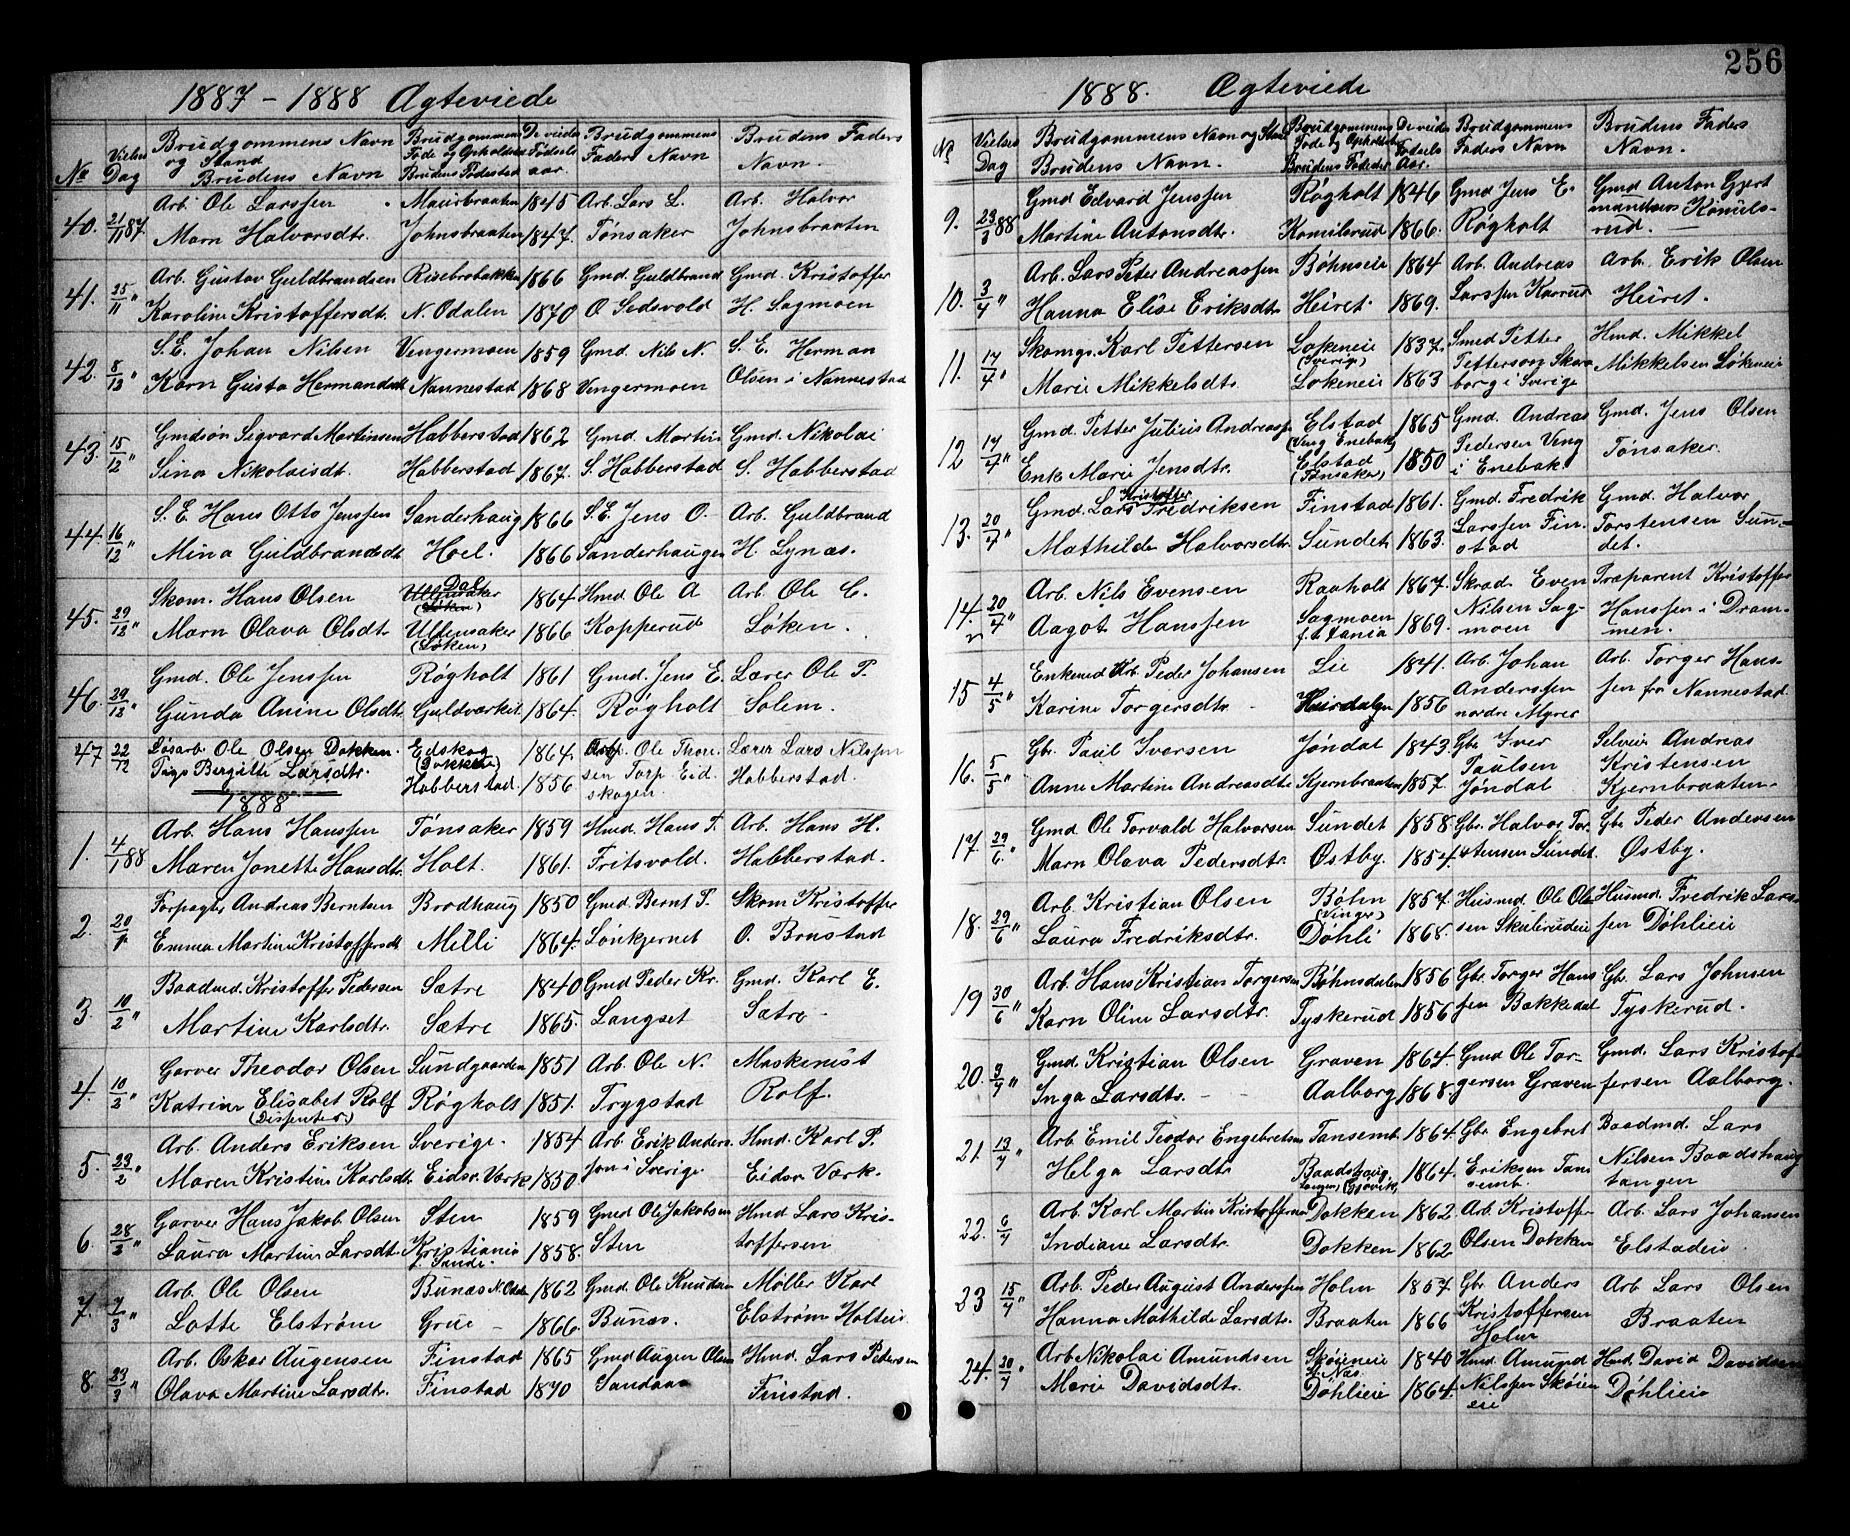 256
1887 - 1888 Ægteviede
No Vielses Dag | Brudgommens Navn og Stand Brudens Navn | Brudgommens Føde og Opholdssted Brudens Fødested | De viedes Fødselsaar. | Brudgommens Faders Navn | Brudens Faders Navn.
40. 21/11 87 | Arb. Ole Larssen | Maurbraaten | 1845 | Arb. Lars L. | Arb. Halvor
Marn Halvorsdtr. | Johnsbraaten | 1847. | Tønsaker | Johnsbraaten
41. 25/11 " | Arb. Gustav Guldbrandsen | Risebrobakken | 1866 | Gmd. Guldbrand | Gmd. Kristoffer
Karoline Kristoffersdt. | N. Odalen | 1870 | O Sedsvold | H. Sagmoen
42. 8/12 " | S.E. Johan Nilsen | Vengermoen | 1859 | Gmd. Nils N. | S. E. Herman
Karn Gusta Hermandsdt | Nannestad | 1868 | Vengermoen | Olsen i Nannestad
43. 15/12 " | Gmdsøn Sigvard Martinsen | Habberstad | 1862 | Gmd. Martin | Gmd. Nikolai
Sina Nikolaisdt. | Habberstad | 1867. | S. Habberstad | S. Habberstad
44. 16/12 " | S. E. Hans Otto Jenssen | Sanderhaug | 1866 | S.E. Jens O. | Arb. Guldbrand
Mina Guldbrandsdt | Hoel. | 1866 | Sanderhaugen | H. Lynæs.
45. 29/12 " | Skom. Hans Olsen | Dal | 1864 | Hmd. Ole A | Arb. Ole C.
Marn Olava Olsdt. | Ullensaker (Løken) | 1866 | Kopperud | Løken.
46. 29/12 " | Gmd. Ole Jenssen | Røgholt | 1861 | Gmd. Jens E. | Lærer Ole P.
Gunda Anine Olsdtr | Guldværket | 1864. | Røgholt | Solem.
47 22/12 | Løsarb. Ole Olsen Dokken. | Eidskog (Dokken) | 1864. | Arb. Ole Thore- | Lærer Lars Nilssen
Pige Bergitte Larsdtr. | Habberstad. | 1856. | sen Torp Eid- skogen. | Habberstad.
1888
1. 4/1 88 | Arb. Hans Hanssen | Tønsaker | 1859 | Hmd. Hans P. | Arb. Hans H.
Maren Jonette Hansdtr. | Holt. | 1861. | Fritsvold. | Habberstad.
2. 20/1 " | Forpagter Andreas Berntsen | Brodhaug | 1850 | Gmd. Bernt P. | Skom Kristoffer
Emma Martine Kristoffersdt | Milli | 1864. | Lønkjernet | O. Brustad
3. 10/2 " | Baadmd. Kristoffer Pedersen | Sætre | 1840 | Gmd Peder Kr. | Gmd. Karl E.
Martine Karlsdtr. | Sætre | 1865. | Langset | Sætre -
4. 10/2 " | Garver Theodor Olsen | Sundgaarden | 1851 | Arb. Ole N. | Maskenist
Katrine Elisabet Rolf (Dissenter.) | Røgholt | 1851. | Trygstad | Rolf.
5. 23/2 " | Arb. Anders Eriksen | Sverige. | 1854 | Arb. Erik Anders- | Hmd. Karl P.
Maren Kristine Karlsdt. | Eidsv. Værk | 1850 | son i Sverige. | Eidsv. Værk.
6. 28/2 " | Garver Hans Jakob Olsen | Sten | 1859 | Gmd Ole Jakobsen | Hmd Lars Kris-
Laura Martine Larsdt. | Kristiania f. Sande. | 1858. | Sten | toffersen
7. 7/3 " | Arb. Ole Olsen | Bunæs N. Odalen | 1862 | Gmd. Ole Knudsen | Møller Karl
Lotte Elstrøm | Grue - | 1866. | Bunæs. | Elstrøm Holteie
8. 23/3 " | Arb. Oskar Augensen | Finstad | 1865 | Gmd Augen Olsen | Hmd. Lars Pedersen
Olava Martine Larsdt. | Finstad | 1870 | Sandaa | Finstad.
1888. Ægteviede
No Vielses Dag | Brudgommens Navn og Stand Brudens Navn. | Brudgommens Føde og Opholdssted Brudens Fødested | De viedes Fødsels Aar. | Brudgommens Faders Navn | Brudens Faders Navn.
9. 23/3 88 | Gmd Edvard Jenssen | Røgholt | 1846 | Gmd Jens E. | Gmd Anton Gjert
Martine Antonsdtr. | Komilsrud | 1866. | Røgholt | mandsens Komils- rud. -
10. 3/4 " | Arb. Lars Peter Andreassen | Bøhnseie | 1864 | Arb. Andreas | Arb. Erik Olsen
Hanna Elise Eriksdt. | Heiret. | 1869. | Larssen Karrud | Heiret.
11. 17/4 " | Skomgr. Karl Pettersen | Løkeneie (Sverig) | 1837. | Smed Petter | Hmd. Mikkel
Marie Mikkelsdtr | Løkeneie | 1863 | Petterson Skara borg i Sverige | Mikkelsen Løkeneie
12 17/4 " | Gmd. Petter Julius Andreass. | Elstad (Veng Enebak) | 1865 | Gmd. Andreas | Gmd. Jens Olsen
Enk Marie Jensdtr. | Elstad (Tønsaker) | 1850 | Pedersen Veng i Enebak. | Tønsaker.
13. 20/4 " | Gmd. Lars Kristoffer Fredriksen | Finstad | 1861. | Gmd Fredrik | Gmd. Halvor
Mathilde Halvorsdtr. | Sundet. | 1863. | Larssen Fin- stad | Torstensen Sun- det.
14. 20/4 " | Arb. Nils Evensen | Raaholt | 1867. | Skrad. Even | Præparent Kristoffer
Aagot Hanssen | Sagmoen | 1869. | Nilsen Sag- moen | Hanssen i Dram- men.
15 4/5 " | Enkemd Arb. Peder Johansen | Lie | 1841. | Arb. Johan | Arb. Torger Hans-
Karine Torgersdtr. | Heirdalen | 1856 | Anderssen nordre Myrer | sen fra Nannestad
16. 5/5 " | Gbr. Paul Iversen | Jøndal | 1843. | Gbr Iver | Selveier Andreas
Anne Martine Andreasdtr | Kjernbraaten | 1857. | Paulsen Jøndal | Kristensen Kjernbraaten.
17. 29/6. " | Gmd Ole Torvald Halvorsen | Sundet | 1858. | Gbr. Halvor Tor- | Gbr Peder Andersen
Marn Olava Pedersdtr. | Østby. | 1854. | stensen Sundet. | Østby.
18. 29/6 " | Arb. Kristian Olsen | Bøhn (Vinger) | 1857. | Husmd Ole Ole | Husmd. Fredrik Lars-
Laura Fredriksdtr. | Døhli | 1868. | sen Skulerudeie | sen Døhlieie
19 30/6 " | Arb. Hans Kristian Torgersen | Bøhnsdalen | 1856 | Gbr Torger Hans | Gbr. Lars Johnsen
Karn Oline Larsdtr. | Tyskerud | 1856 | sen Bakkedal | Tyskerud.
20. 3/7 " | Gmd. Kristian Olsen | Graven | 1864. | Gmd Ole Tor- | Gmd. Lars Kristof-
Inga Larsdtr. - - | Aalborg | 1868. | gersen Graven | fersen Aalborg.
21. 13/7 " | Arb Emil Teodor Engebretsen | Tansemb. | 1864. | Gbr Engebret | Baadmd. Lars
Helga Larsdtr | Baadshaug tangen, (Gjøvik) | 1864. | Eriksen Tan semb. | Nilsen Baadshaug tangen
22. 6/7 " | Arb. Karl Martin Kristoffersen | Dokken | 1862 | Arb. Kristoffer | Arb. Lars Johansen
Indiane Larsdtr. | Dokken | 1862 | Olsen Dokken | Elstadeie.
23 15/7 " | Arb. Peder August Anderssen | Holm | 1857 | Gbr. Anders | Arb Lars Olsen
Hanna Mathilde Larsdtr. | Braaten | 1866 | Kristoffersen Holm | Braaten
24. 20/7 " | Arb Nikolai Amundsen | Skøieneie N. Næs. | 1840 | Hmd. Amund | Hmd. David Davidsen
Marie Davidsdtr. | Døhlieie | 1864. | Nilssen Skøien eie | Døhlieie